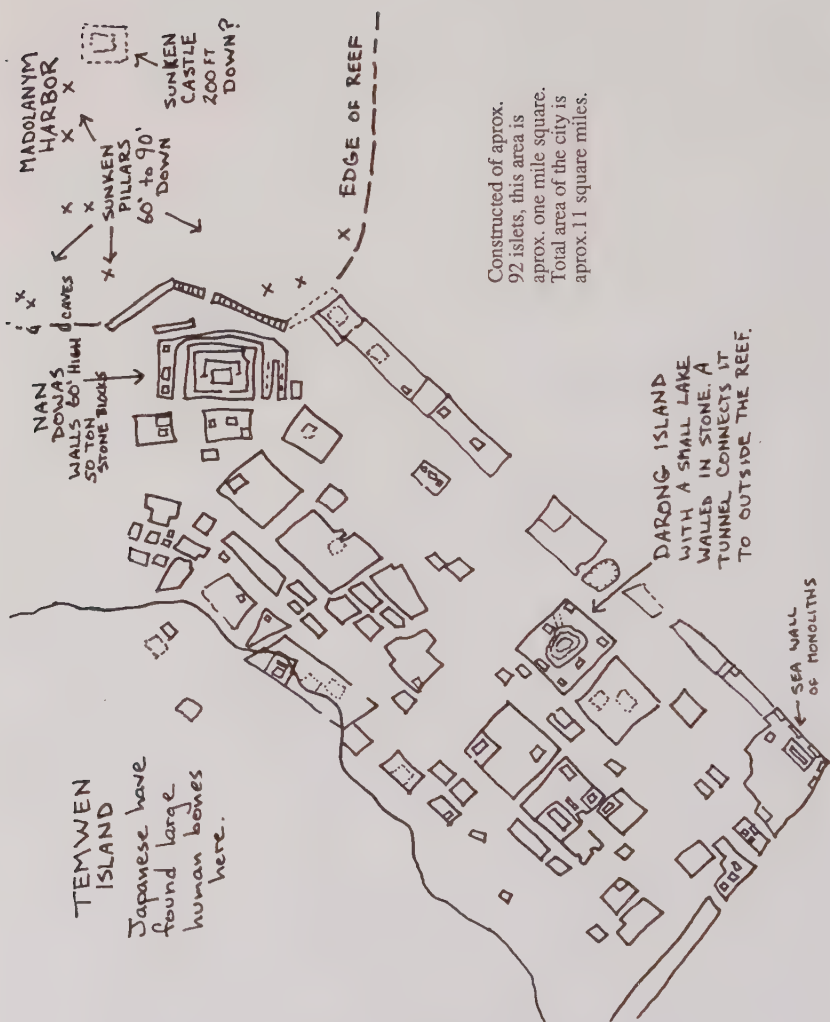 MADOLANYM
HARBOR
SUNKEN
CASTLE
200 FT
DOWN?
SUNKEN
PILLARS
60' to 90'
DOWN
EDGE OF REEF
CAVES
NAN
DOWAS
WALLS 60' HIGH
50 TON
STONE BLOCKS
Constructed of aprox.
92 islets, this area is
aprox. one mile square.
Total area of the city is
aprox.11 square miles.
TEMWEN
ISLAND
Japanese have
found large
human bones
here.
DARONG ISLAND
WITH A SMALL LAKE
WALLED IN STONE. A
TUNNEL CONNECTS IT
TO OUTSIDE THE REEF.
SEA WALL
OF MONOLITHS